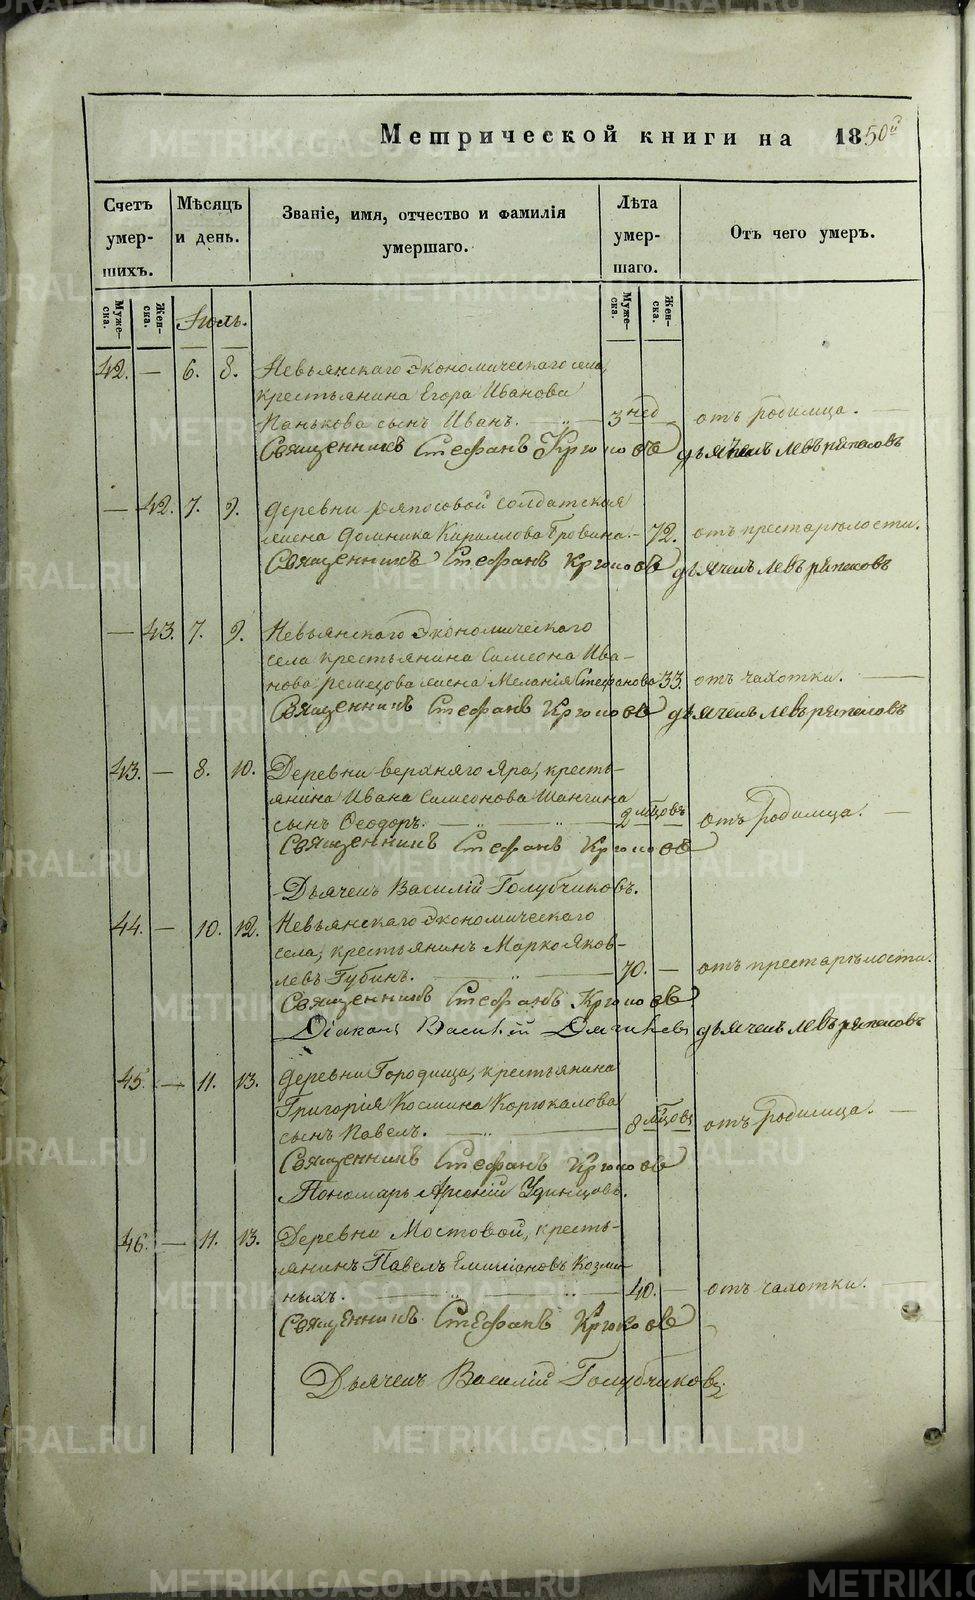 Метрической книги на 1850й
Счетъ умер-шихъ.
Мѣсяцъ и день.
Званіе, имя, отчество и фамилія умершаго.
Лѣта умер-шаго.
Отъ чего умеръ.
Муже-ска.
Жен-ска.
Муже-ска.
Жен-ска.
Іюль.
42. — 6. 8. Невьянскаго Экономическаго села,
крестьянина Егора Иванова
Панькова сынъ Иванъ. 3 нед отъ родимца.
Священникъ Стефанъ Крюковъ дьячекъ Левъ
— 42. 7. 9. деревни солдатская
жена Домника Кириллова 72. отъ престарѣлости.
Священникъ Стефанъ Крюковъ дьячекъ Левъ
— 43. 7. 9. Невьянскаго Экономическаго
села крестьянина Симеона Ива-
нова жена Меланія Стефанова 33. отъ чахотки.
Священникъ Стефанъ Крюковъ дьячекъ Левъ
43. — 8. 10. Деревни верхняго Яра, кресть-
янина Ивана Симеонова Шангина
сынъ Ѳеодоръ. 2 мѣсцовъ отъ Родимца.
Священникъ Стефанъ Крюковъ
Дьячекъ Василій Голубчиковъ.
44. — 10. 12. Невьянскаго Экономическаго
села, крестьянинъ Марко Яков-
левъ Губинъ. 70. — отъ престарѣлости.
Священникъ Стефанъ Крюковъ
Діаконъ Василій дьячекъ Левъ
45. — 11. 13. деревни Городища, крестьянина
Григорія Космина Корюкалова
сынъ Павелъ. 8 мѣсцовъ отъ Родимца.
Священникъ Стефанъ Крюковъ
Пономарь Арсеній Удинцовъ.
46. — 11. 13. Деревни Мостовой, кресть-
янинъ Павелъ Емиліановъ Козми-
ныхъ. 40. — отъ чахотки.
Священникъ Стефанъ Крюковъ
Дьячекъ Василій Голубчиковъ
METRIKI.GASO-URAL.RU